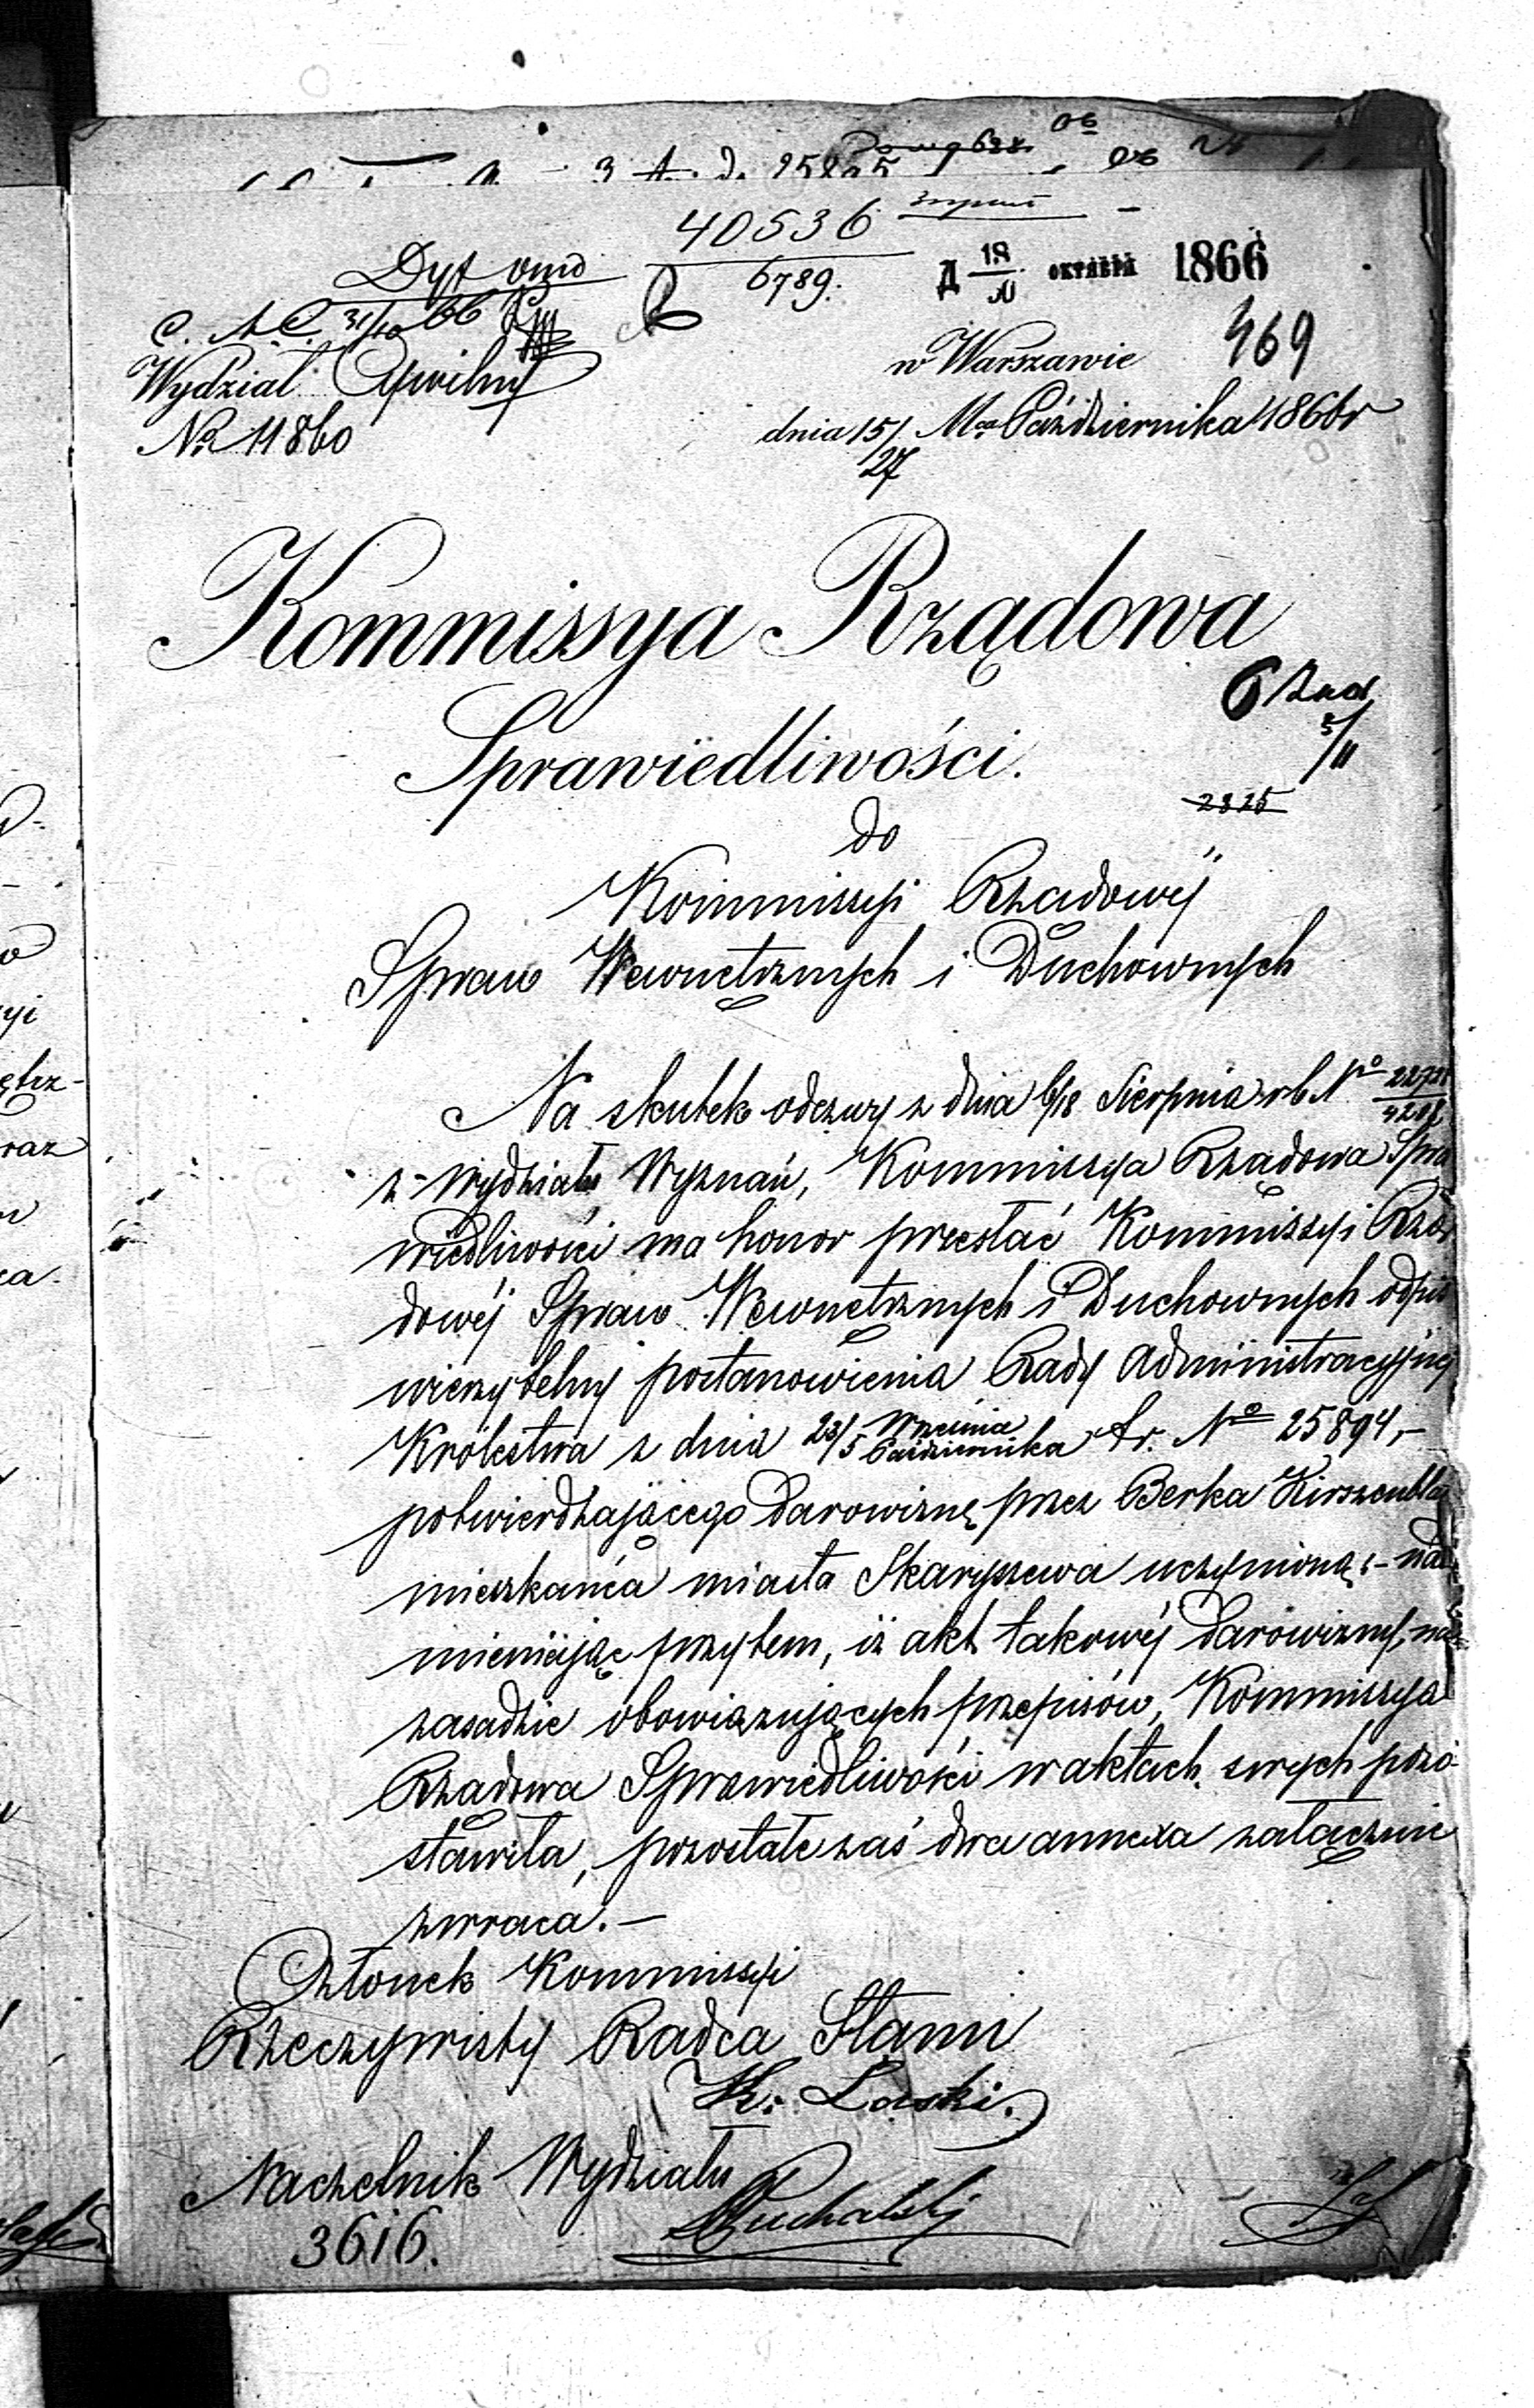 40536
6789.
Д 18/30 ОКТЯБРЯ 1866
31/10 66
469
Wydział Cywilny
w Warszawie
№ 11860
dnia 15/27 Października 1866 r
Kommissya Rządowa
Sprawiedliwości.
5/11
2325
do
Kommissyi Rządowéj
Spraw Wewnętrznych i Duchownych
Na skutek odezwy z dnia 6/18 Sierpnia r b №
z Wydziału Wyznań, Kommissya Rządowa Spra
wiedliwości ma honor przesłać Kommissyi Rzą
dowéj Spraw Wewnętrznych i Duchownych odpis
wierzytelny postanowienia Rady Administracyjnéj
Królestwa z dnia 23/5 Września Października t. r. № 25894,-
potwierdzającego darowiznę przez Berka Kirszenbla
mieszkańca miasta Skaryszewa uczynioną; - nad
mieniając przytem, iż akt takowéj darowizny, na
zasadzie obowiązujących przepisów, Kommissya
Rządowa Sprawiedliwości w aktach swych pozo-
stawiła, pozostałe zaś dwa annexa załącznie
zwraca. -
Członek Kommissyi
Rzeczywisty Radca Stanu
Laski.
Naczelnik Wydziału
Puchalski
3616.